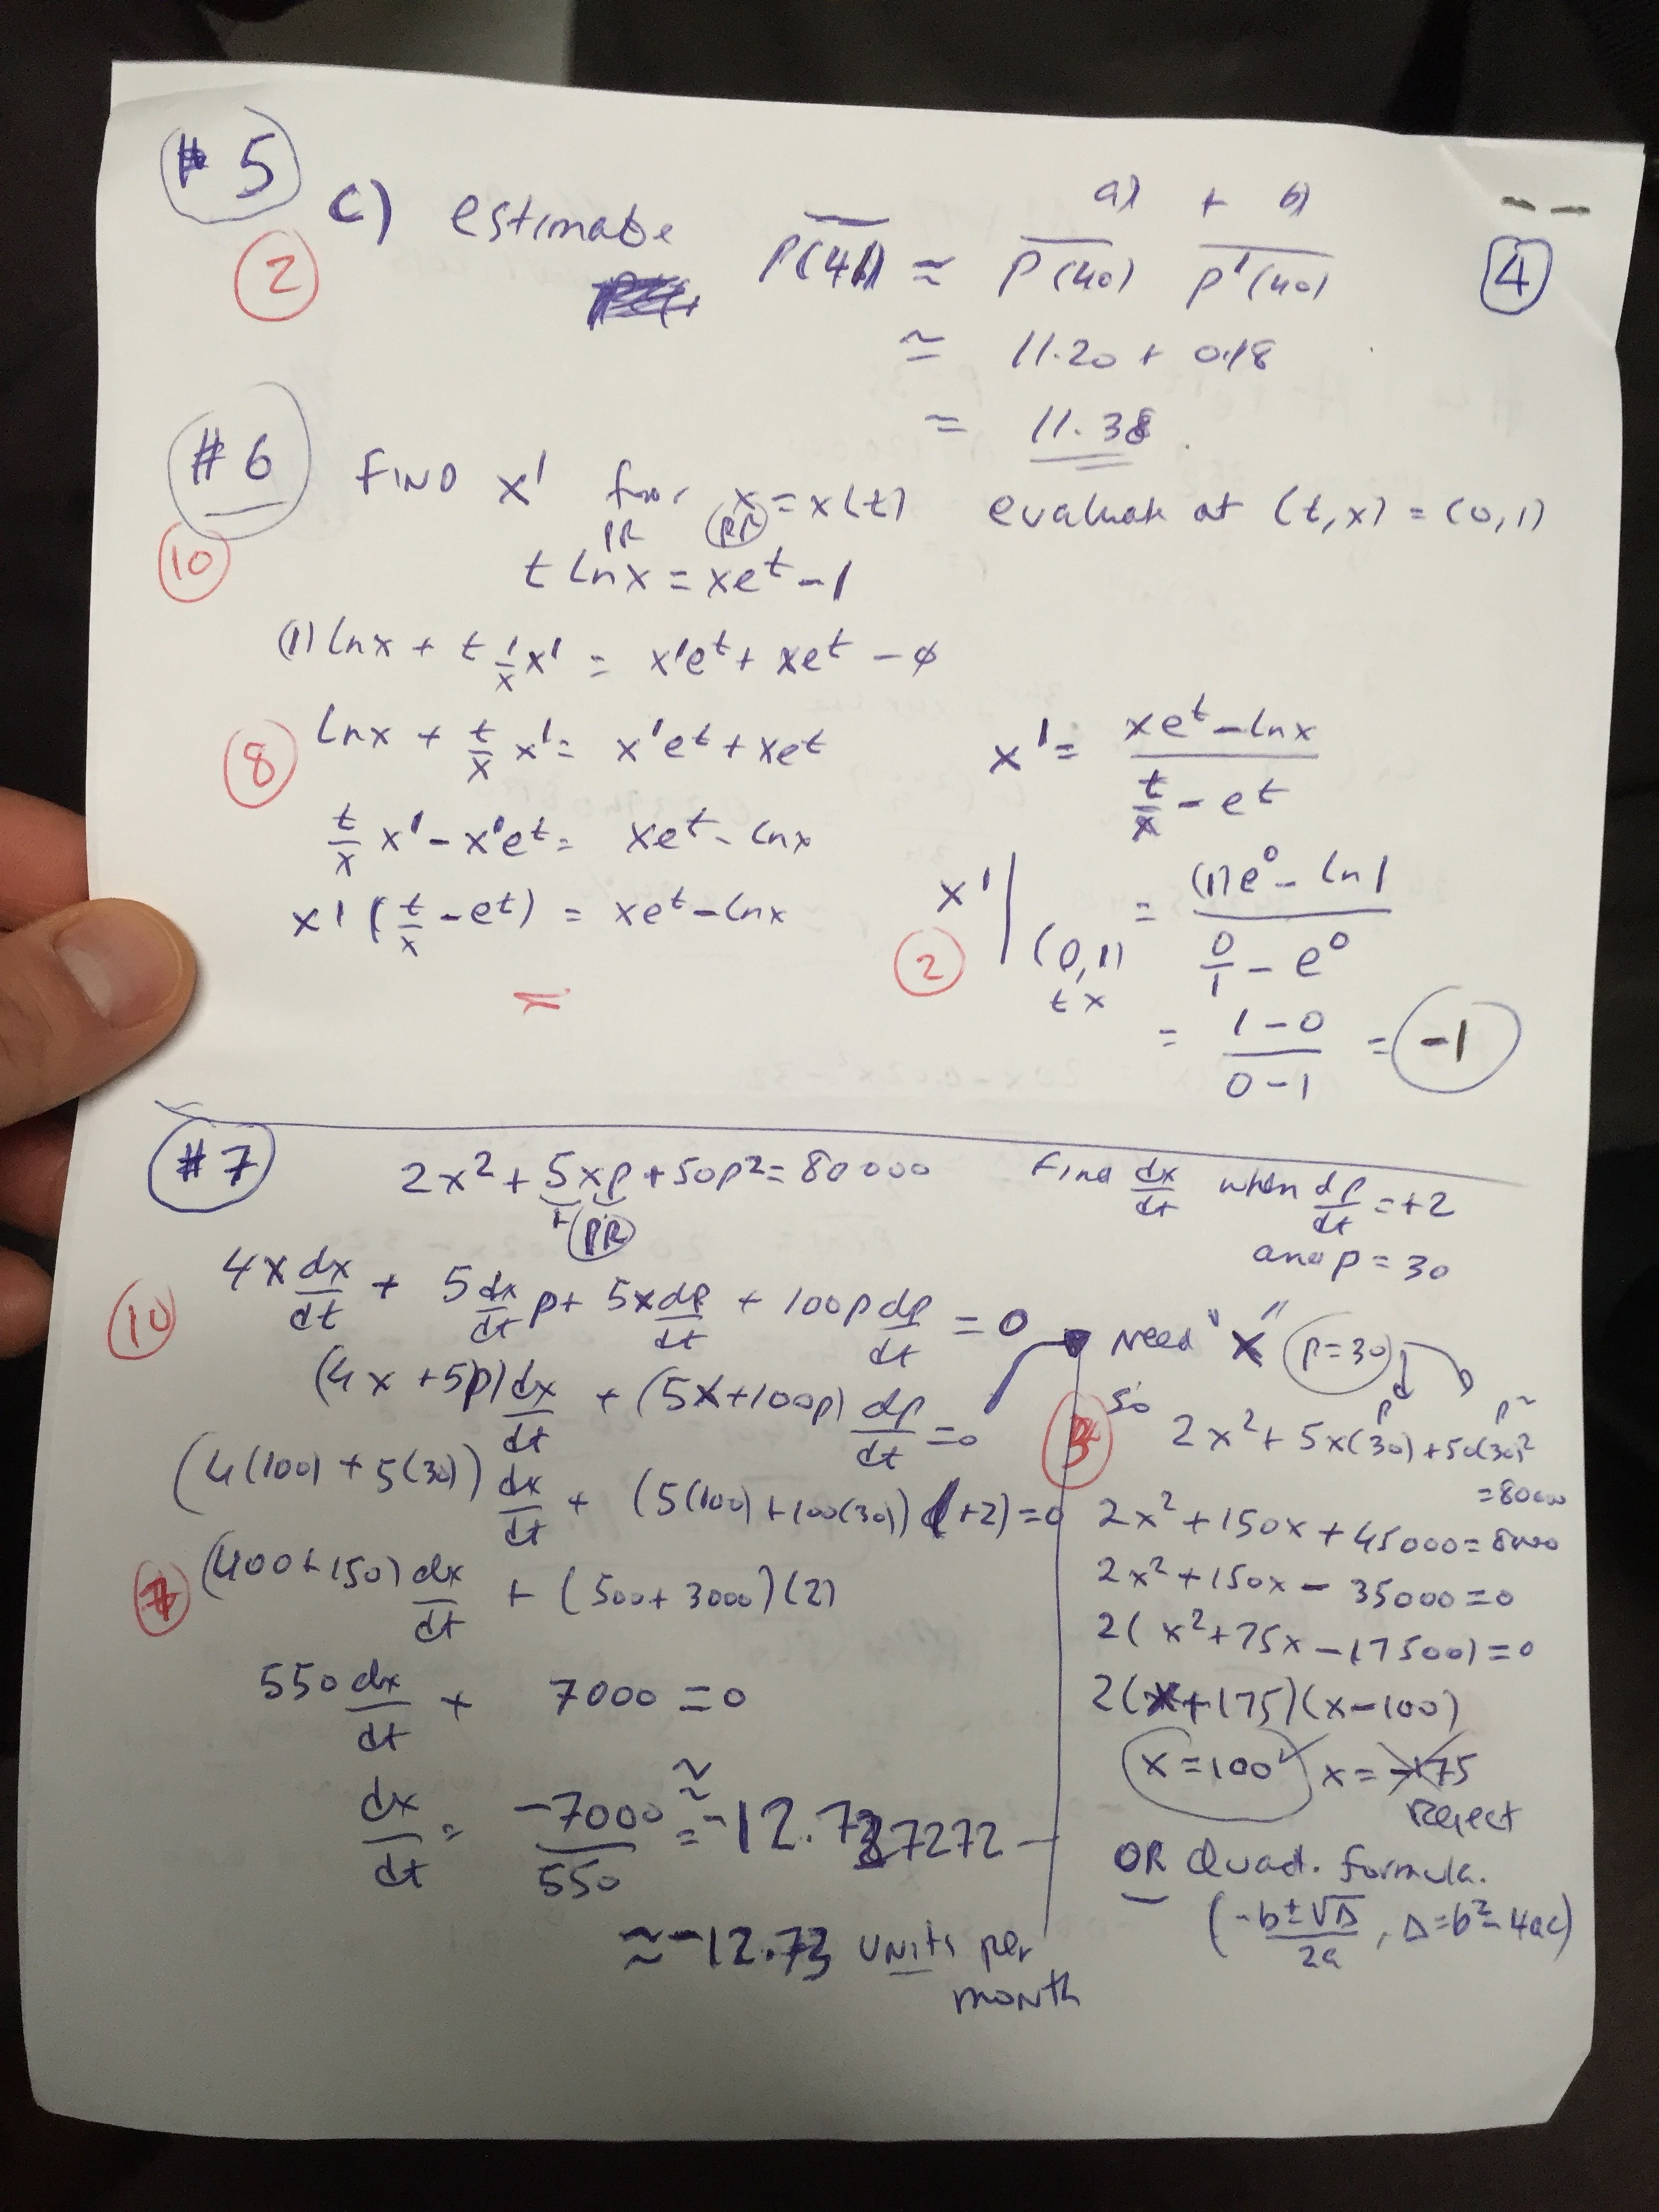 # 5
c) estimate P(41) ≈ P(40) + P'(40)
a) + b)
2
4
≈ 11.20 + 0.18
= 11.38
# 6 FIND x' for x = x(t) evaluate at (t,x) = (0,1)
10
PR PR
t ln x = xe^t - 1
(1) ln x + t 1/x x' = x'e^t + xe^t - 0
8
ln x + t/x x' = x'e^t + xe^t
t/x x' - x'e^t = xe^t - ln x
x' (t/x - e^t) = xe^t - ln x
x' = (xe^t - ln x)/(t/x - e^t)
2
x'|(0,1) = ((1)e^0 - ln 1)/(0/1 - e^0)
t x
= (1 - 0)/(0 - 1) = -1
# 7 2x² + 5xp + 50p² = 80000 Find dx/dt when dp/dt = +2
PR
and p = 30
10
4x dx/dt + 5 dx/dt p + 5x dp/dt + 100p dp/dt = 0
(4x + 5p) dx/dt + (5x + 100p) dp/dt = 0
(4(100) + 5(30)) dx/dt + (5(100) + 100(30)) (+2) = 0
7
(400 + 150) dx/dt + (500 + 3000)(2)
550 dx/dt + 7000 = 0
dx/dt = -7000/550 = -12.727272
≈ -12.73 units per
month
Need "X" p = 30
3
so
p p²
2x² + 5x(30) + 50(30)²
= 80000
2x² + 150x + 45000 = 80000
2x² + 150x - 35000 = 0
2(x² + 75x - 17500) = 0
2(x + 175)(x - 100)
x = 100 ✓ x = -175
Reject
OR Quad. formula.
(-b ± √Δ / 2a , Δ = b² - 4ac)